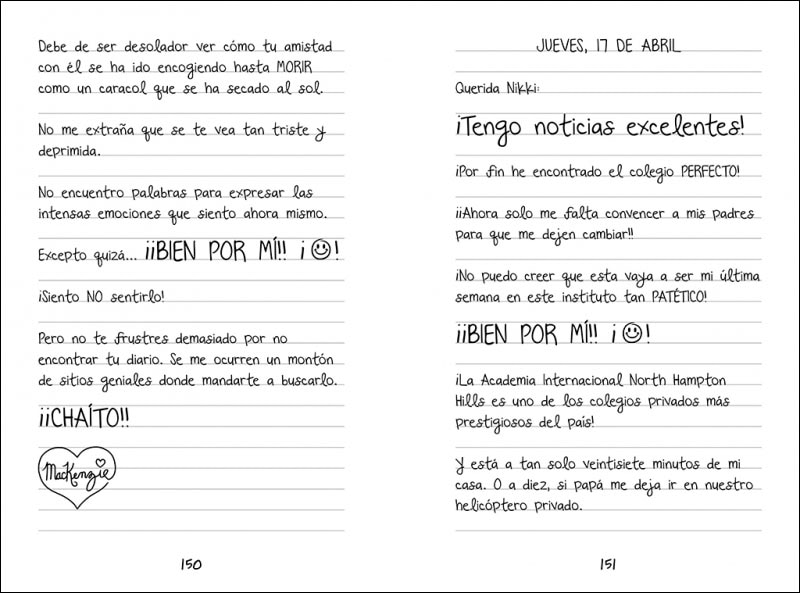 Debe de ser desolador ver cómo tu amistad
con él se ha ido encogiendo hasta MORIR
como un caracol que se ha secado al sol.
No me extraña que se te vea tan triste y
deprimida.
No encuentro palabras para expresar las
intensas emociones que siento ahora mismo.
Excepto quizá... ¡¡BIEN POR MÍ!! ¡☺!
¡Siento NO sentirlo!
Pero no te frustres demasiado por no
encontrar tu diario. Se me ocurren un montón
de sitios geniales donde mandarte a buscarlo.
¡¡CHAÍTO!!
MacKenzie
150
JUEVES, 17 DE ABRIL
Querida Nikki:
¡Tengo noticias excelentes!
¡Por fin he encontrado el colegio PERFECTO!
¡¡Ahora solo me falta convencer a mis padres
para que me dejen cambiar!!
¡No puedo creer que esta vaya a ser mi última
semana en este instituto tan PATÉTICO!
¡¡BIEN POR MÍ!! ¡☺!
¡La Academia Internacional North Hampton
Hills es uno de los colegios privados más
prestigiosos del país!
Y está a tan solo veintisiete minutos de mi
casa. O a diez, si papá me deja ir en nuestro
helicóptero privado.
151